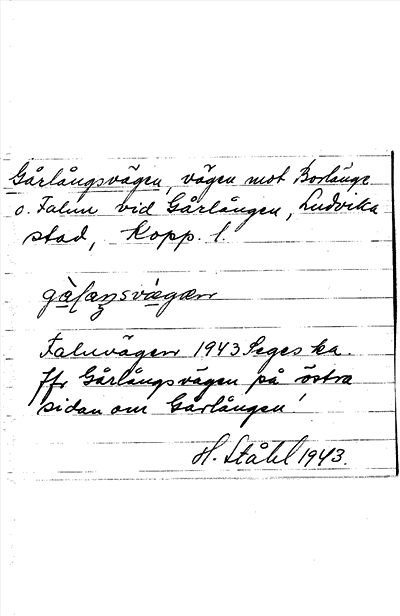 Gårlångsvägen, vägen mot Borlänge
o. Falun vid Gårlången, Ludvika
stad, Kopp. l.
Faluvägen 1943 Seges ka.
Jfr Gårlångsvägen på östra
sidan om Gårlången!
H. Ståhl 1943.